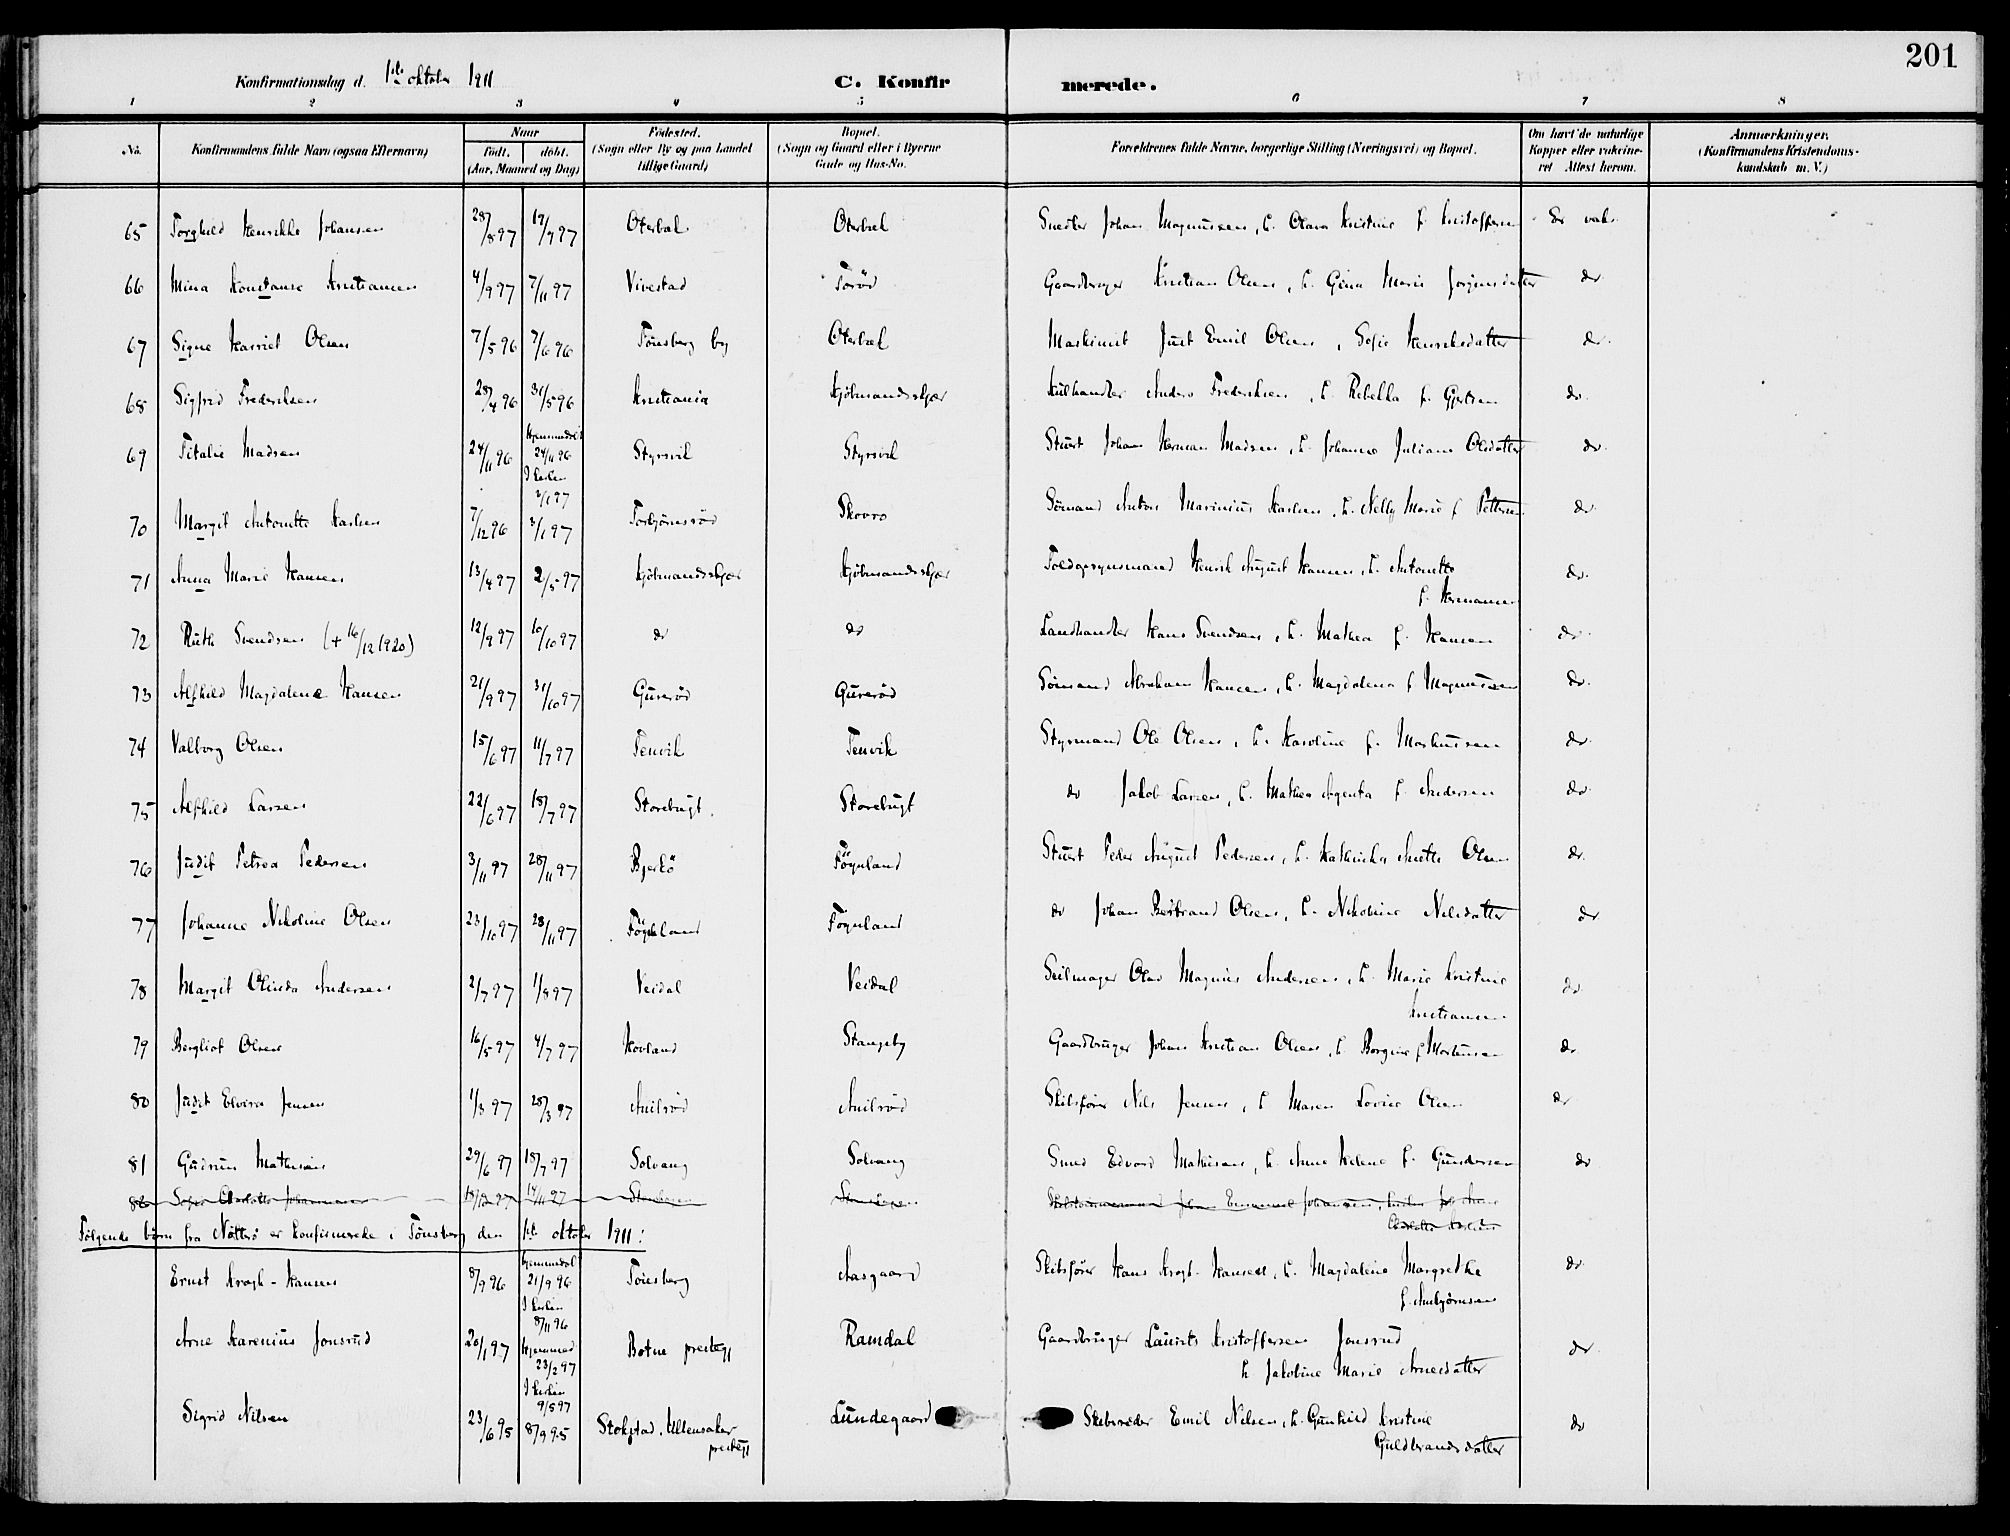 201
Konfirmationsdag d. 1ste oktober 1911
C. Konfir merede.
1 2 3 4 5 6 7 8
No. Konfirmandens fulde Navn (ogsaa Efternavn) Naar født. døbt. (Aar, Maaned og Dag) Fødested. (Sogn eller By og paa Landet tillige Gaard) Bopæl. (Sogn og Gaard eller i Byerne Gade og Hus-No.) Forældrenes fulde Navne, borgerlige Stilling (Næringsvei) og Bopæl. Om havt de naturlige Kopper eller vakcineret Attest herom. Anmærkninger. (Konfirmandens Kristendomskundskab m. V.)
65 Torghild Henrikke Johansen 28/8 97 17/9 97 Oterbæk Oterbæk Snedker Johan Magnussen, h. Olava Kristine f. Kristoffersen Er vak.
66 Mina Konstanse Kristiansen 4/9 97 7/11 97 Vivestad Torød Gaardbruger Kristian Olsen, h. Gina Marie Jørgensdatter do
67 Signe Harriet Olsen 7/5 96 7/6 96 Tønsberg by Oterbæk Maskinist Just Emil Olsen, Sofie Henriksdatter do
68 Sigfrid Frederiksen 28/4 96 31/5 96 Kristiania Kjøbmandsskjær Kulhandler Anders Frederiksen, h. Rebekka f. Gjertsen do
69 Titalie Madsen 24/11 96 Hjemmedøbt 24/11 96 I kirken 2/1 97 Styrsvik Styrsvik Stuert Johan Herman Madsen, h. Johanne Juliane Olsdatter do
70 Margit Antonette Karlsen 7/12 96 3/1 97 Torbjørnsrød Skovro Sømand Anton Marinius Karlsen, h. Nelly Marie f. Pettersen do
71 Anna Marie Hansen 13/4 97 2/5 97 Kjøbmandsskjær Kjøbmandsskjær Toldopsynsmand Henrik August Hansen, h. Antonette f. Hermansen do
72 Ruth Svendsen (+ 16/12 1920) 12/9 97 10/10 97 do do Landhandler Hans Svendsen, h. Mathea f. Hansen do
73 Alfhild Magdalene Hansen 21/9 97 31/10 97 Guserød Guserød Sømand Abraham Hansen, h. Magdalena f. Magnussen do
74 Valborg Olsen 15/6 97 11/7 97 Tenvik Tenvik Styrmand Ole Olsen, h. Karoline f. Markussen do
75 Alfhild Larsen 22/6 97 18/7 97 Storebugt. Storebugt do Jakob Larsen, h. Mathea Agenta f. Andersen do
76 Judit Petrea Pedersen 3/11 97 28/11 97 Bjerkø Føynland Stuert Peder August Pedersen, h. Kathinka Anette Olsen do
77 Johanne Nikoline Olsen 23/10 97 28/11 97 Føynland Føynland do Johan Bertrand Olsen, h. Nikoline Nilsdatter do
78 Margit Olinda Andersen 2/7 97 1/8 97 Veidal Veidal Seilmager Olav Magnus Andersen, h. Marie Kristine Kristiansen do
79 Bergliot Olsen 16/5 97 4/7 97 Hovland Stangeby Gaardbruger Johan Kristian Olsen, h. Borgine f. Mortensen do
80 Judit Elvira Jensen 1/3 97 28/3 97 Arilsrød Arilsrød Skibsfører Nils Jensen, h. Maren Lovise Olsen do
81 Gudrun Mathisen 29/6 97 18/7 97 Solvang Solvang Smed Edvard Mathisen, h. Anne Helene f. Gundersen do
82 Sofie Charlotte Johannessen 18/10 97 14/11 97
Følgende børn fra Nøtterø er konfirmerede i Tønsberg den 1ste oktober 1911:
Ernst Krogh-Hansen 8/9 96 hjemmedøbt 21/9 96 I kirken 8/11 96 Tønsberg Aasgaard Skibsfører Hans Krogh-Hansen, h. Magdalene Margrethe f. Ambjørnsen do
Arne Karenius Jonsrud 20/1 97 Hjemmed. 23/2 97 I kirken 9/5 97 Botne prestegj Ramdal Gaardbruger Laurits Kristoffersen Jonsrud h. Jakobine Marie Arnesdatter do
Sigrid Nilsen 23/6 95 8/9 95 Stokstad, Ullensaker prestegj Lundegaard Skibsreder Emil Nilsen, h. Gunhild Kristine Guldbrandsdatter do